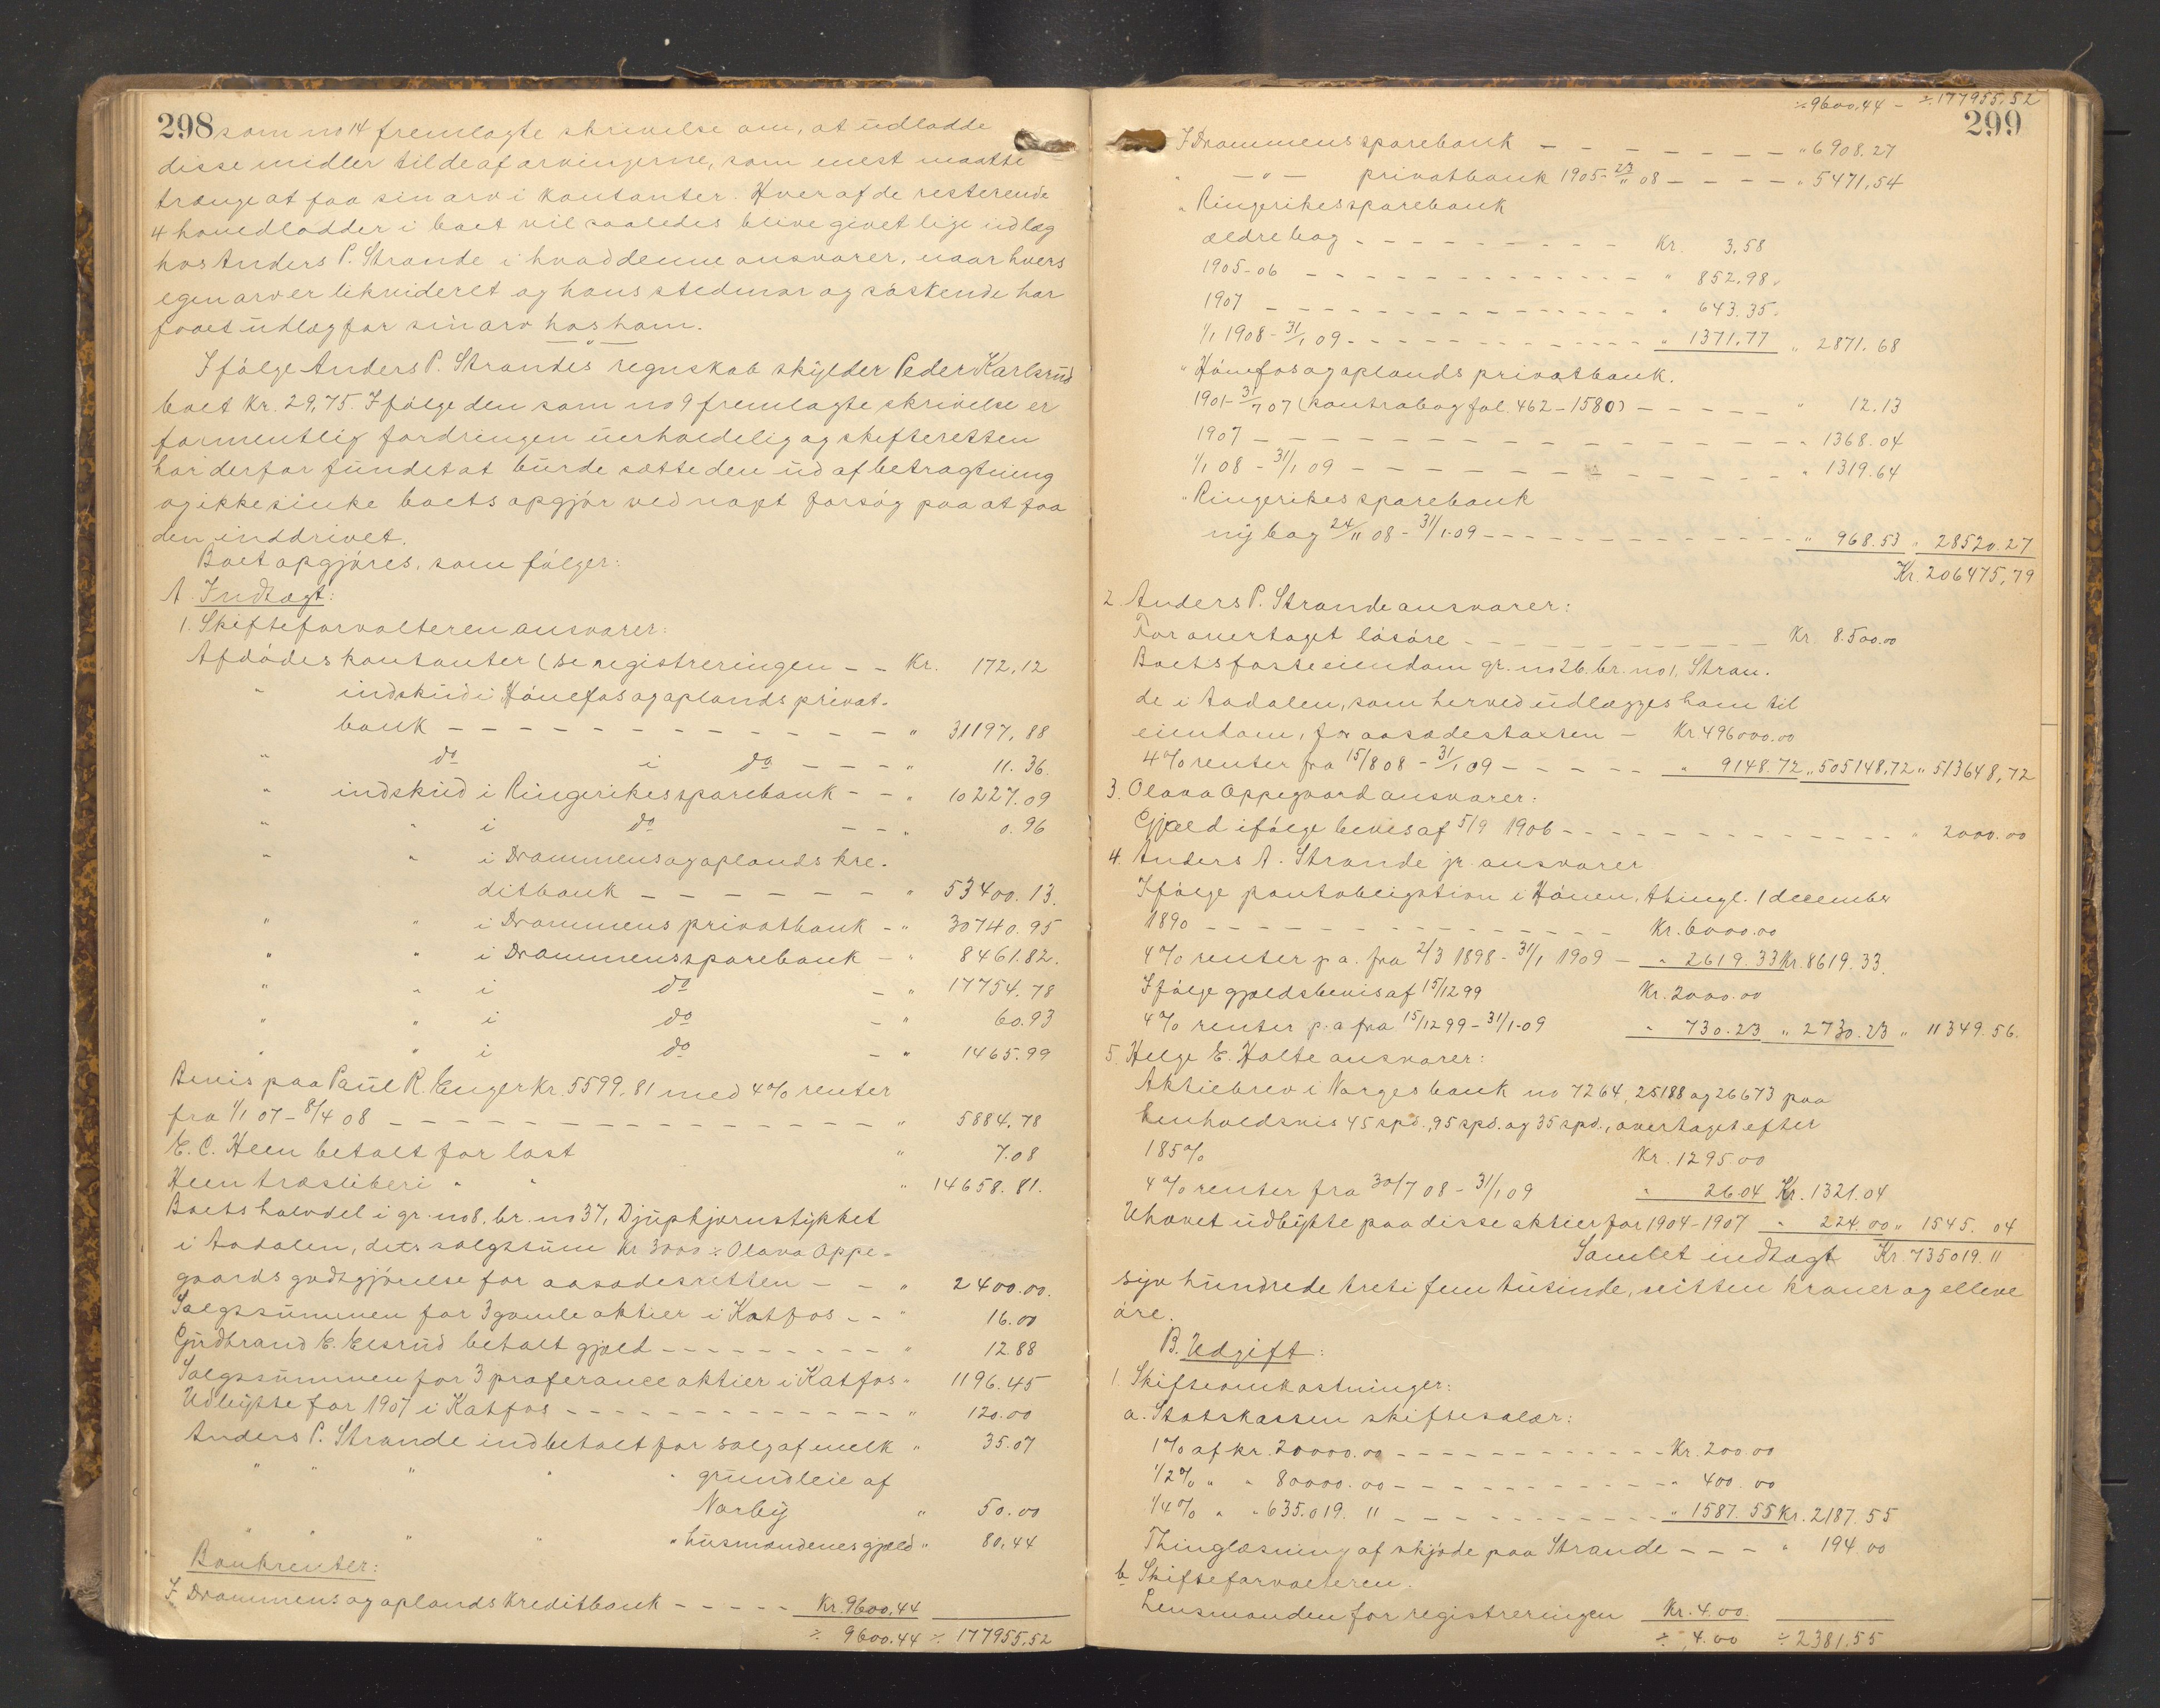 298 som no 14 fremlagte skrivelse om, at udlodde
disse midler til de af arvingerne, som mest maatte
trænge at faa sin arv i kontanter. Hver af de resterende
4 hovedlodder i boet vil saaledes blive givet lige udlæg
hos Anders P. Strande i hvad denne ansvarer, naar hvers
egen arv er likvideret og hans stedmor og søskende har
faaet udlæg for sin arv hos ham.
Ifølge Anders P. Strandes regnskab skylder Peder Karlsrud
boet Kr. 29,75. Ifølge den som no 9 fremlagte skrivelse er
formentlig fordringen uerholdelig og skifteretten
har derfor fundet at burde sætte den ud af betragtning
og ikke sinke boets opgjør ved nøpt forsøg paa at faa
den inddrivet.
Boet opgjøres, som følger:
A. Indtægt:
1. Skifteforvalteren ansvarer:
Afdødes kontanter (se registreringen - - Kr. 172,12
" indskud i Hønefos og oplands privat-
bank - - - - - - - - " 31197,88
" do i do - - - " 11.36.
" indskud i Ringerikes sparebank - - " 10227.09
" " i do - - " 0.96
" " i Drammens og oplands kre-
ditbank - - - - - - " 53400.13.
" " i Drammens privatbank - " 30740.95
" " i Drammens sparebank - " 8461.82.
" " i do - " 17754.78
" " i do - " 60.93
" " i do - " 1465.99
Bevis paa Paul R. Enger Kr. 5599.81 med 4% renter
fra 1/1 07 - 8/4 08 - - - - - - - - " 5884,78
E. C. Heen betalt for last " 7.08
Heen træsliberi " " " 14658.81.
Boets halvdel i gr. no 8, br. no 37, Djuptjernstykket
i Aadalen, dets salgssum Kr 3000 ÷ Olava Oppe-
gaards godtgjørelse for aasædesretten - - " 2400.00.
Salgssummen for 3 gamle aktier i Katfos - - " 16.00
Gudbrand E. Elsrud betalt gjæld - - - - - - " 12.88
Salgssummen for 3 præferance aktier i Katfos " 1196.45
Udbytte for 1907 i Katfos - - - - - - - - " 120.00
Anders P. Strande indbetalt for salg af melk " 35.07
" " " " " grundleie af
Norby " 50.00
" " " " " husmændenes gjæld " 80,44
Bankrenter:
I Drammens og oplands kreditbank - - - - - Kr. 9600,44
÷ 9600.44 ÷ 177955,52
÷ 9600,44 - ÷ 177955,52
299
I Drammens sparebank - - - - - - - " 6908.27
" - " - privatbank 1905 - 23/11 08 - - - - " 5471,54
" Ringerikes sparebank
ældre bog - - - - - - - - - Kr. 3,58
1905-06 - - - - - - - - - - - " 852.98.
1907 - - - - - - - - - - - - " 643.35.
1/1 1908 - 31/1 09 - - - - - - - - - " 1371,77 " 2871.68
" Hønefos og oplands privatbank.
1901 - 31/7 07 (kontrabog fol. 462 - 1580) - - - - - " 12.13
1907 - - - - - - - - - - - - - - " 1368.04
1/1 08 - 31/1 09 - - - - - - - - - - - " 1319.64
" Ringerikes sparebank
ny bog 24/11 08 - 31/1-09 - - - - - - - - - - " 968.53 " 28520.27
Kr. 206475,79
2. Anders P. Strande ansvarer:
For overtaget løsøre - - - - - - - - Kr. 8.500.00
Boets faste eiendom gr. no 26. br. no 1, Stran-
de i Aadalen, som herved udlægges ham til
eiendom, for aasædestaxten - Kr 496000.00
4% renter fra 15/8 08 - 31/1 09 - - - - - " 9148.72 " 505148,72 " 513648,72
3. Olava Oppegaard ansvarer:
Gjæld ifølge bevis af 5/9 1906 - - - - - - - - - - " 2000.00
4. Anders A. Strande jr. ansvarer
Ifølge pantobligation i Hønen, thingl. 1 december
1890 - - - - - - - - - - - - - - Kr. 6000.00
4% renter p.a. fra 2/3 1898 - 31/1 1909 - " 2619.33 Kr. 8619.33.
Ifølge gjældsbevis af 15/12 99 Kr. 2000.00
4% renter p.a fra 15/12 99 - 31/1-09 " 730.23 " 2730.23 " 11349.56.
5. Helge E. Holte ansvarer:
Aktiebrev i Norges bank no 7264, 25188 og 26673 paa
henholdsvis 45 spd., 95 spd. og 35 spd., overtaget efter
185% Kr. 1295.00
4% renter fra 30/7 08 - 31/1 09 " 26.04 Kr. 1321.04
Uhævet udbytte paa disse aktier for 1904-1907 " 224.00 " 1545.04
Samlet indtægt Kr. 735019.11
syv hundrede treti fem tusinde, nitten kroner og elleve
øre.
B. Udgift:
1. Skifteomkostninger:
a. Statskassen skiftesalær:
1% af kr. 20000.00 - - - - - - - - - - - Kr. 200.00
1/2% " " 80000.00 - - - - - - - - - - - " 400.00
1/4% " " 635.019.11 - - - - - - - - - " 1587.55 Kr. 2187.55
Thinglæsning af skjøde paa Strande - - - " 194.00
b Skifteforvalteren.
Lensmanden for registreringen Kr. 4.00.
÷ 4.00 ÷ 2381.55